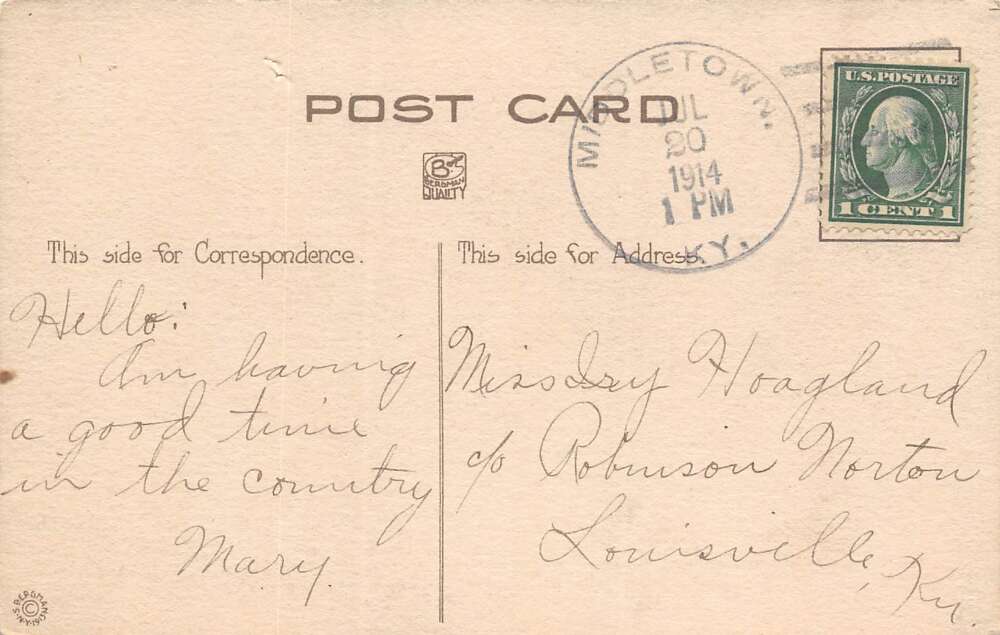 POST CARD
MIDDLETOWN,
JUL
20
1914
1 PM
KY.
U.S. POSTAGE
1 CENT 1
BERGMAN
QUALITY
This side for Correspondence.
Hello:
Am having
a good time
in the country
Mary.
This side for Address.
Miss Izy Hoagland
c/o Robinson Norton
Louisville, Ky.
S. BERGMAN N.Y. 191
©